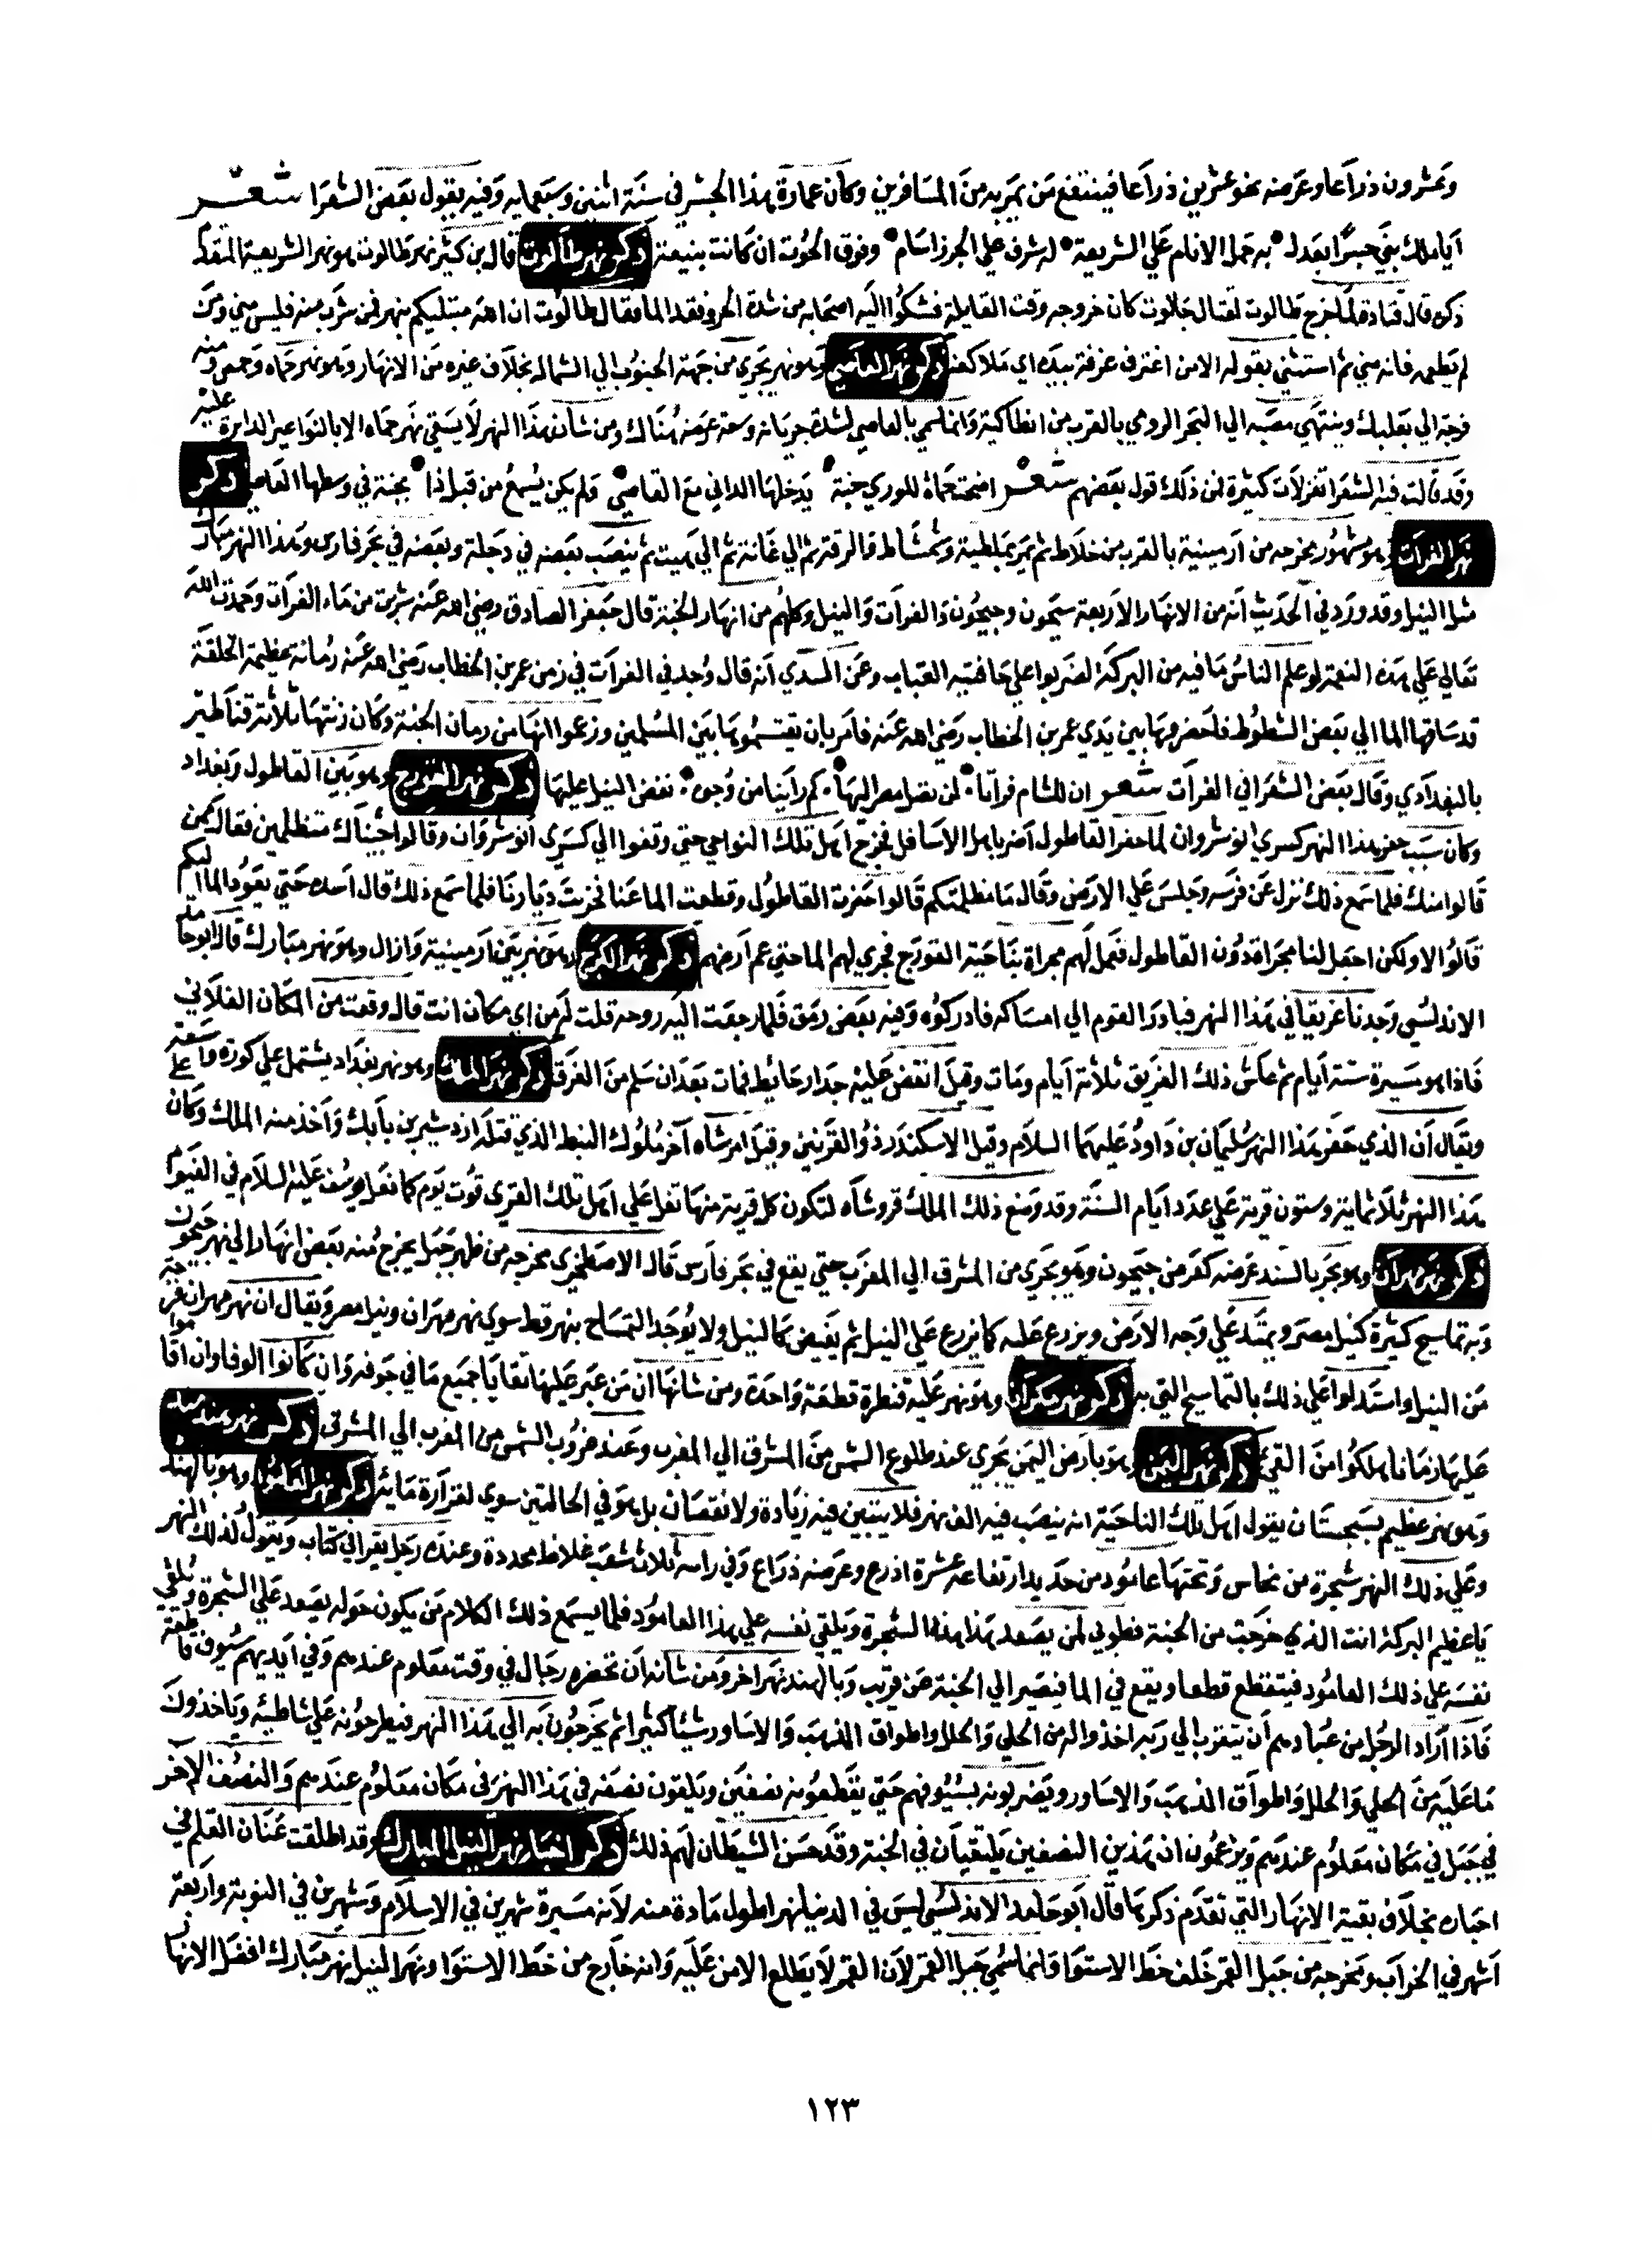 وعشرون ذراعا وعرضه نحو عشرين ذراعا فينتفع من يمر به من المسافرين وكان عمارة هذا الجسر في سنة اثنين وسبعمايه وفيه يقول بعض الشعرا شعر
اياملك بني جسرا بعدل به حمل الانام علي الشريعة له شرف علي الجوزاسام وفوق الحوت ان كانت بنيعة ذكر نهر طالوت قال بن كثير نهر طالوت هو نهر الشريعة المتقدم
ذكره قال قتادة لما خرج طالوت لقتال جالوت كان خروجه وقت القايلة فشكوا اليه اصحابه من شدة الحر وفقد الما فقال طالوت ان الله مبتليكم بنهر فمن شرب منه فليس مني ومن
لم يطعمه فانه مني ثم استثني بقوله الا من اغترف غرفة بيده اي ملا كفه ذكر نهر العاصي وهو نهر يجري من جهة الجنوب الي الشمال بخلاف غيره من الانهار وهو نهر حماه وحمص ومنه
فرجة الي بعلبك وينتهي مصبه الي البحر الرومي بالقرب من انطاكية وانما سمي بالعاصي لشدة جريانه وسعة عرضه هناك ومن شان هذا النهر لا يسقي نهر حماه الا بالنواعير الدايرة عليه
وقد قالت فيه الشعرا تغزلات كثيرة فمن ذلك قول بعضهم شعر اضحت حماة للوري جنة يدخلها الداني مع القاصي ولم يكن يسمع من قبل ذا بجنة في وسطها العاصي ذكر
نهر الفرات وهو مشهور مخرجه من ارمينية بالقرب من خلاط ثم يمر بملطية وشمشاط والرقة ثم الي غانة ثم الي هيت ثم ينصب بعضه في دجلة وبعضه في بحر فارس وهذا النهر مبارك
مثل النيل وقد ورد في الحديث انه من الانهار الاربعة سيحون وجيحون والفرات والنيل وكلهم من انهار الجنة قال جعفر الصادق رضي الله عنه شربت من ماء الفرات وحمدت الله
تعالي علي هذه النعمة لو علم الناس ما فيه من البركة لضربوا علي حافتيه القباب وعن السدي انه قال وجد في الفرات في زمن عمر بن الخطاب رضي الله عنه رمانة عظيمة الخلقة
قد ساقها الما الي بعض الشطوط فاحضروها بين يدي عمر بن الخطاب رضي الله عنه فامر بان يقتسموها بين المسلمين وزعموا انها من رمان الجنة وكان زنتها ثلاثة قناطير
بالبغدادي وقال بعض الشعرا في الفرات شعر ان للشام فراتا لن تصل مصر اليها كم راينا من وجوه نغض النيل عليها ذكر نهر القورج وهو بين القاطول وبغداد
وكان سبب حفر هذا النهر كسري انوشروان لما حفر القاطول اضر باهل الاسافل فخرج اهل تلك النواحي حتي وقفوا الي كسري انوشروان وقالوا جيناك متظلمين فقال ممن
قالوا منك فلما سمع ذلك نزل عن فرسه وجلس علي الارض وقال ما مظلمتكم قالوا حفرت القاطول وقطعت الما عنا فخربت ديارنا فلما سمع ذلك قال اسده حتي يعود الما اليكم
قالوا لا ولكن اجعل لنا مجراة دون القاطول فعمل لهم مجراة بناحية القورج فجري لهم الما حتي عم ارضهم ذكر نهر الكر وهو نهر بين ارمينية وازال وهو نهر مبارك قال ابو حامد
الاندلسي وجدنا غريقا في هذا النهر فبادر القوم الي امساكه فادركوه وفيه بعض رمق فلما رجعت اليه روحه قلت لهم من اي مكان انت قال وقعت من المكان الفلاني
فاذا هو مسيرة ستة ايام ثم عاش ذلك الغريق ثلاثة ايام ومات وقيل انقض عليه جدار حائط فمات بعد ان سلم من الغرق ذكر نهر الملك وهو نهر بغداد يشتمل علي كورة واسعة
ويقال ان الذي حفر هذا النهر سليمان بن داود عليهما السلام وقيل الاسكندر ذو القرنين وقيل امرشاه آخر ملوك النبط الذي قتله ازدشير بن بابك واخذ منه الملك وكان علي
هذا النهر ثلاثماية وستون قرية علي عدد ايام السنة وقد وضع ذلك الملك قروشاه لتكون كل قرية منها تغل علي اهل تلك القري قوت يوم كما فعل يوسف عليه السلام في الفيوم
ذكر نهر مهران وهو بحر بالسند عرضه كعرض جيحون وهو يجري من المشرق الي المغرب حتي يقع في بحر فارس قال الاصطخري مخرجه من ظهر جبل يخرج منه بعض انهار الي نهر جيحون
وبه تماسيح كثيرة كنيل مصر ويمتد علي وجه الارض ويزرع عليه كما يزرع علي النيل ثم يغيض كالنيل ولا يوجد التمساح بنهر قط سوي نهر مهران ونيل مصر ويقال ان نهر مهران فرجة
من النيل واستدلوا علي ذلك بالتماسيح التي به ذكر نهر وهو نهر عليه قنطرة قطعة واحدة ومن شانها ان من عبر عليها تقايا جميع ما في جوفه وان كانوا الوفا وان اقاموا
عليها زمانا هلكوا من القي ذكر نهر اليمن وهو بارض اليمن يجري عند طلوع الشمس من المشرق الي المغرب وعند غروب الشمس من المغرب الي المشرق ذكر نهر هندمند
وهو نهر عظيم بسجستان يقول اهل تلك الناحية انه ينصب فيه الف نهر فلا يتبين فيه زيادة ولا نقصان بل هو في الحالتين سوي لغزارة مائه ذكر نهر العامود وهو بالهند
وعلي ذلك النهر شجرة من نحاس وتحتها عامود من حديد ارتفاعه عشرة اذرع وعرضه ذراع وفي راسه ثلاث شعب غلاظ محددة وعنده رجل يقرا في كتاب ويقول لذلك النهر
يا عظيم البركة انت الذي خرجت من الجنة فطوبي لمن يصعد هذه الشجرة ويلقي نفسه علي هذا العامود فلما يسمع ذلك الكلام من يكون حوله يصعد علي الشجرة ويلقي
نفسه علي ذلك العامود فيتقطع قطعا ويقع في الما فيصير الي الجنة عن قريب وبالهند نهر اخر ومن شانه ان تحضره رجال في وقت معلوم عندهم وفي ايديهم سيوف قاطعة
فاذا اراد الرجل من عبادهم ان يتقرب الي ربه اخذوا له من الحلي والحلل واطواق الذهب والاساور شيئا كثيرا ثم يخرجون به الي هذا النهر فيطرحونه علي شاطئه وياخذون
ما عليه من الحلي والحلل واطواق الذهب والاساور ويضربونه بسيوفهم حتي يقطعونه نصفين ويلقون نصفه في هذا النهر في مكان معلوم عندهم والنصف الاخر
في جبل في مكان معلوم عندهم ويزعمون ان هذين النصفين يلتقيان في الجنة وقد حسن الشيطان لهم ذلك ذكر اخبار نهر النيل المبارك وقد اطلقت عنان القلم في
اخباره بخلاف بقية الانهار التي تقدم ذكرها قال ابو حامد الاندلسي ليس في الدنيا نهر اطول مادة منه لانه مسيرة شهرين في الاسلام وشهرين في النوبة واربعة
اشهر في الخراب ومخرجه من جبل القمر خلف خط الاستوا وانما سمي جبل القمر لان القمر لا يطلع الا من عليه وانه خارج من خط الاستوا ونهر النيل نهر مبارك افضل الانهار
١٢٣